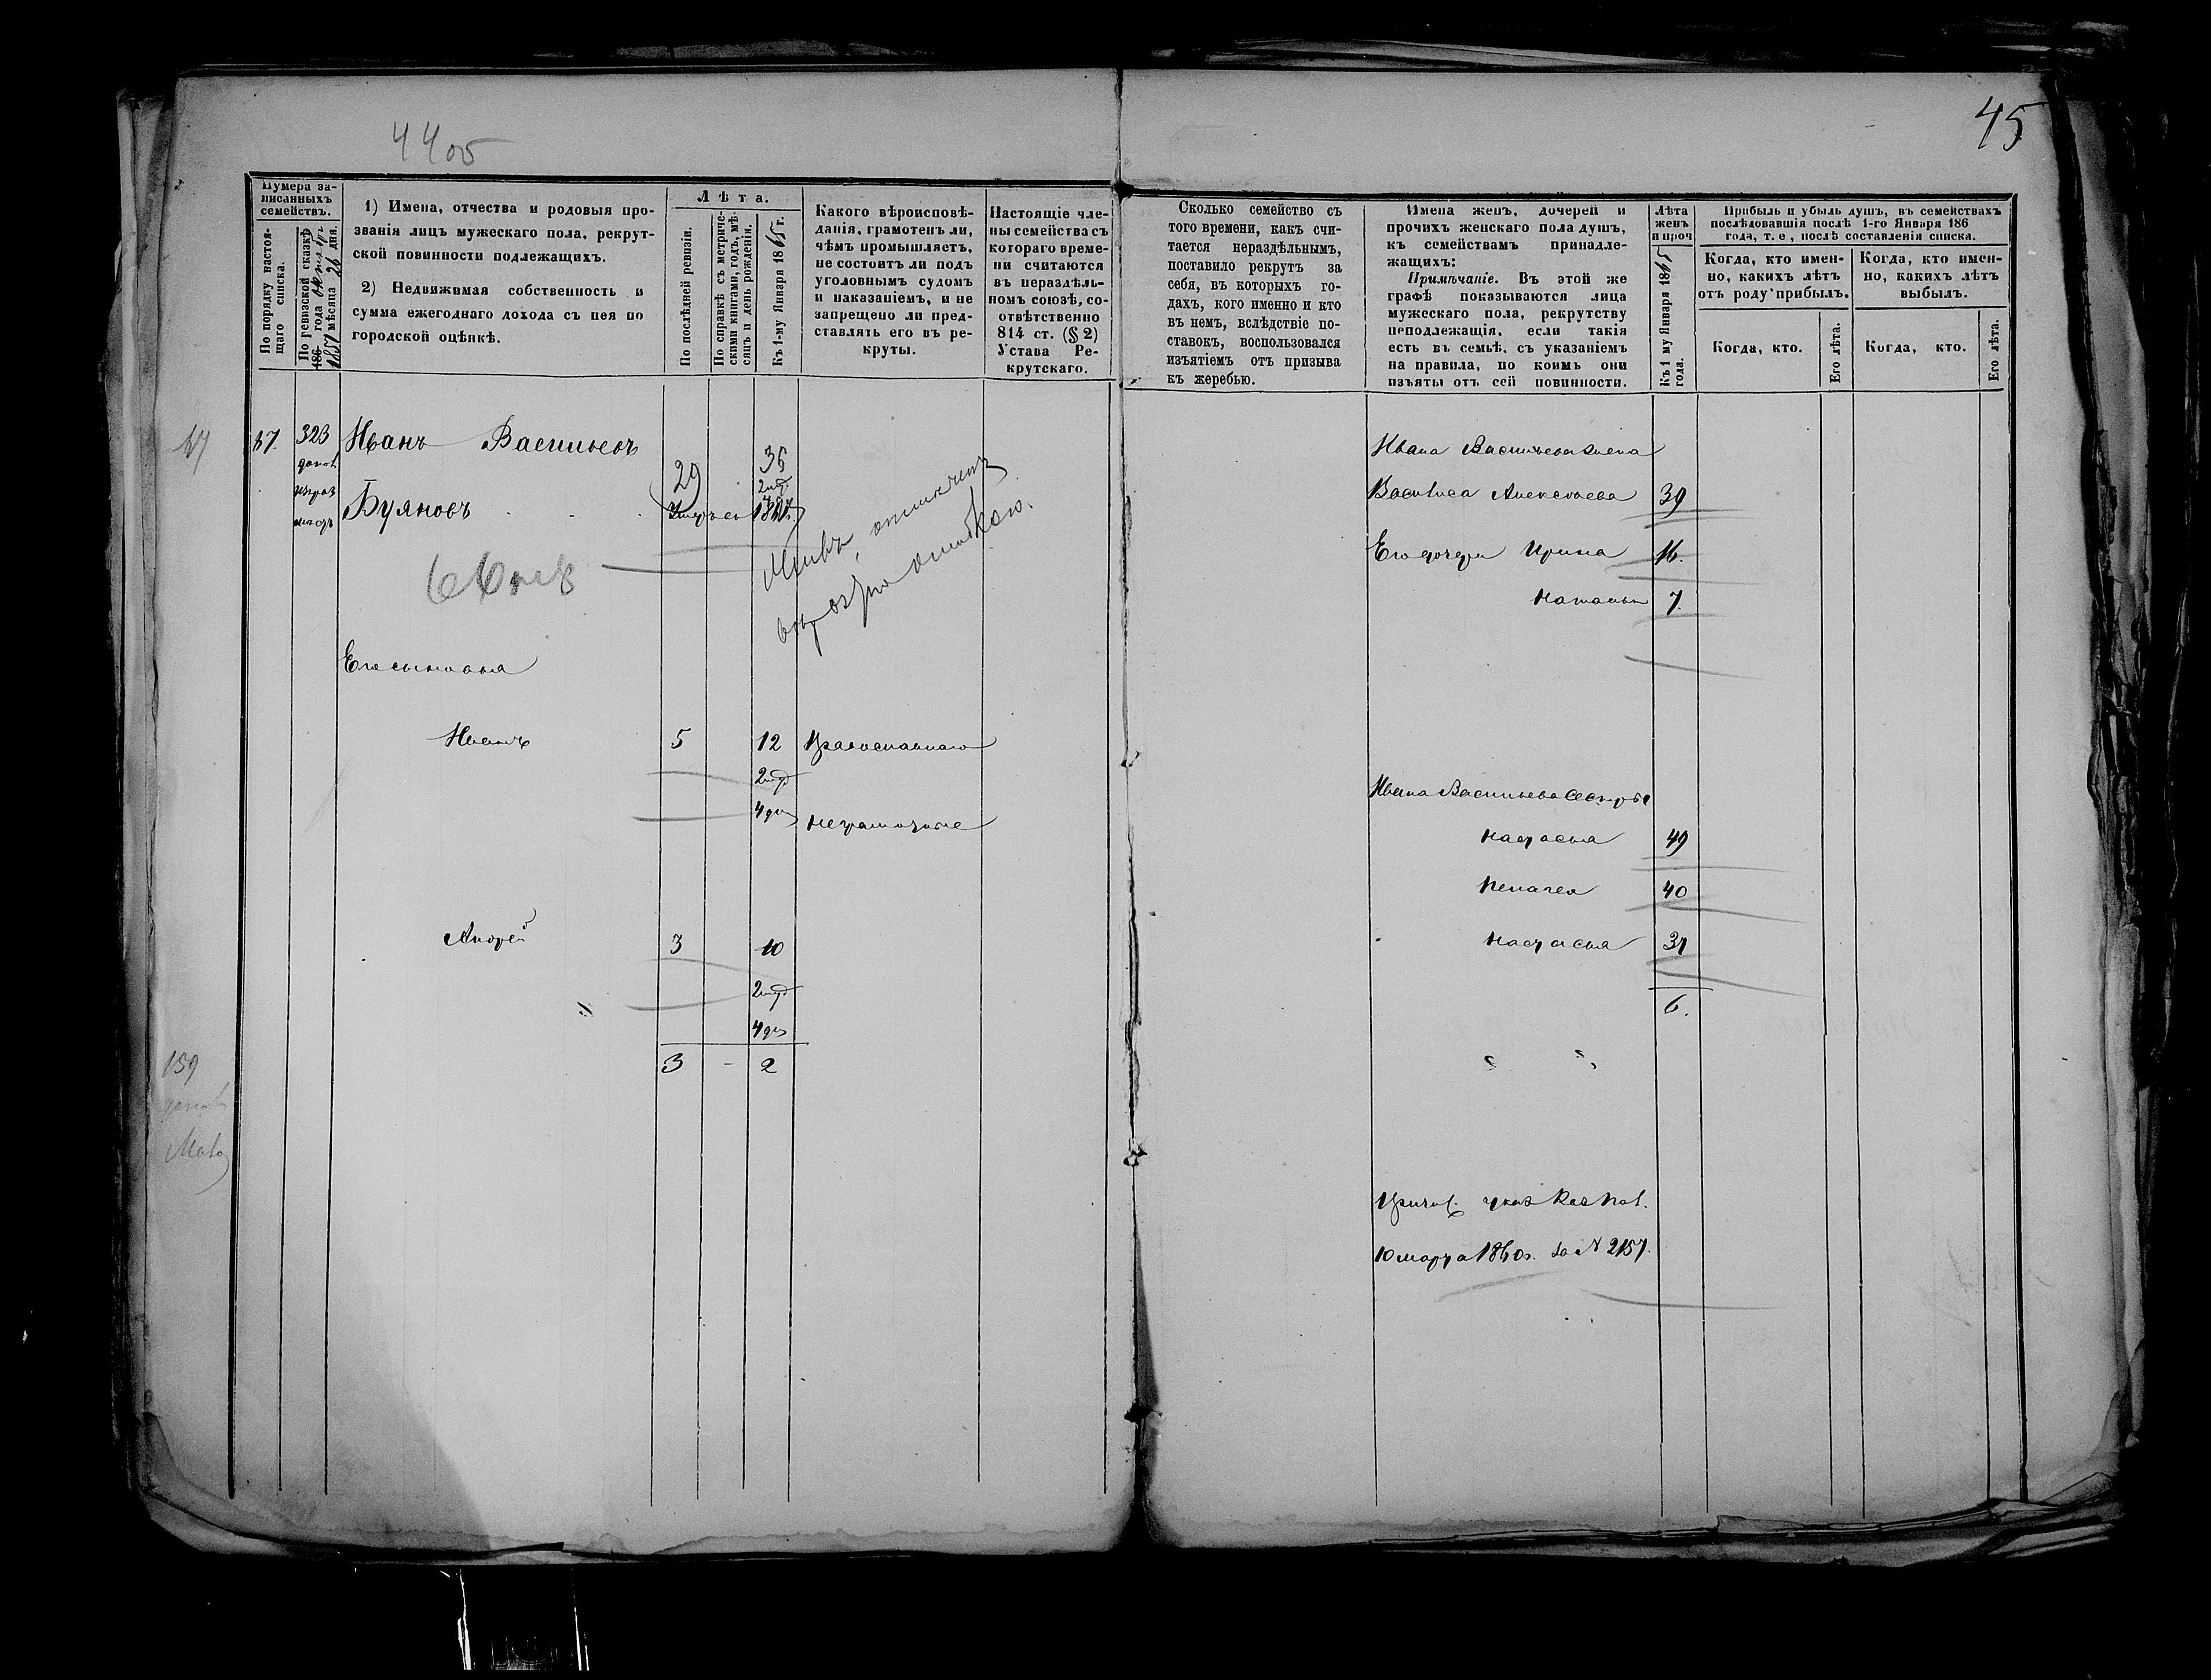 45
4405
Нумера за-
писанныхъ
семействъ.
По порядку настоя-
щаго списка.
По ревизской сказкѣ
186 года октября
1857 мѣсяца 26 дня.
1) Имена, отчества и родовыя про-
званія лицъ мужескаго пола, рекрут-
ской повинности подлежащихъ.
2) Недвижимая собственность и
сумма ежегоднаго дохода съ нея по
городской оцѣнкѣ.
Лѣта.
По послѣдней ревизіи.
По справкѣ съ метриче-
скими книгами, годъ, мѣ-
сяцъ и день рожденія.
Къ 1-му Января 1865 г.
Какого вѣроисповѣ-
данія, грамотенъ ли,
чѣмъ промышляетъ,
не состоитъ ли подъ
уголовнымъ судомъ
и наказаніемъ, и не
запрещено ли пред-
ставлять его въ ре-
круты.
Настоящіе чле-
ны семейства съ
котораго време-
ни считаются
въ нераздѣль-
номъ союзѣ, со-
отвѣтственно
814 ст. (§ 2)
Устава Ре-
крутскаго.
Сколько семейство съ
того времени, какъ счи-
тается нераздѣльнымъ,
поставило рекрутъ за
себя, въ которыхъ го-
дахъ, кого именно и кто
въ немъ, вслѣдствіе по-
ставокъ, воспользовался
изъятіемъ отъ призыва
къ жеребью.
Имена женъ, дочерей и
прочихъ женскаго пола душъ,
къ семействамъ принадле-
жащихъ:
Примѣчаніе. Въ этой же
графѣ показываются лица
мужескаго пола, рекрутству
неподлежащія, если такія
есть въ семьѣ, съ указаніемъ
на правила, по коимъ они
изъяты отъ сей повинности.
Лѣта
женъ
и проч
Къ 1 му Января 1865
года.
Прибыль и убыль душъ, въ семействахъ
послѣдовавшія послѣ 1-го Января 186
года, т. е, послѣ составленія списка.
Когда, кто имен-
но, какихъ лѣтъ
отъ роду прибылъ.
Когда, кто имен-
но, какихъ лѣтъ
выбылъ.
Когда, кто.
Его лѣта.
Когда, кто.
Его лѣта.
323
Иванъ Васильевъ
Буяновъ
29
36
Живъ, отмѣченъ
ошибкою.
Его сыновья
Иванъ 5 12 Православнаго
4
неграмотные
Андрей 3 10
4
3 - 2
Ивана Васильева жена
Василиса Алексѣева 39
Его дочери Ирина 16.
Наталья 7.
Ивана Васильева сестры
Настасья 49
Пелагея 40
Настасья 37
6.
Причис. указ. Каз. Пал.
10 марта 1860 г. за № 2157.
159